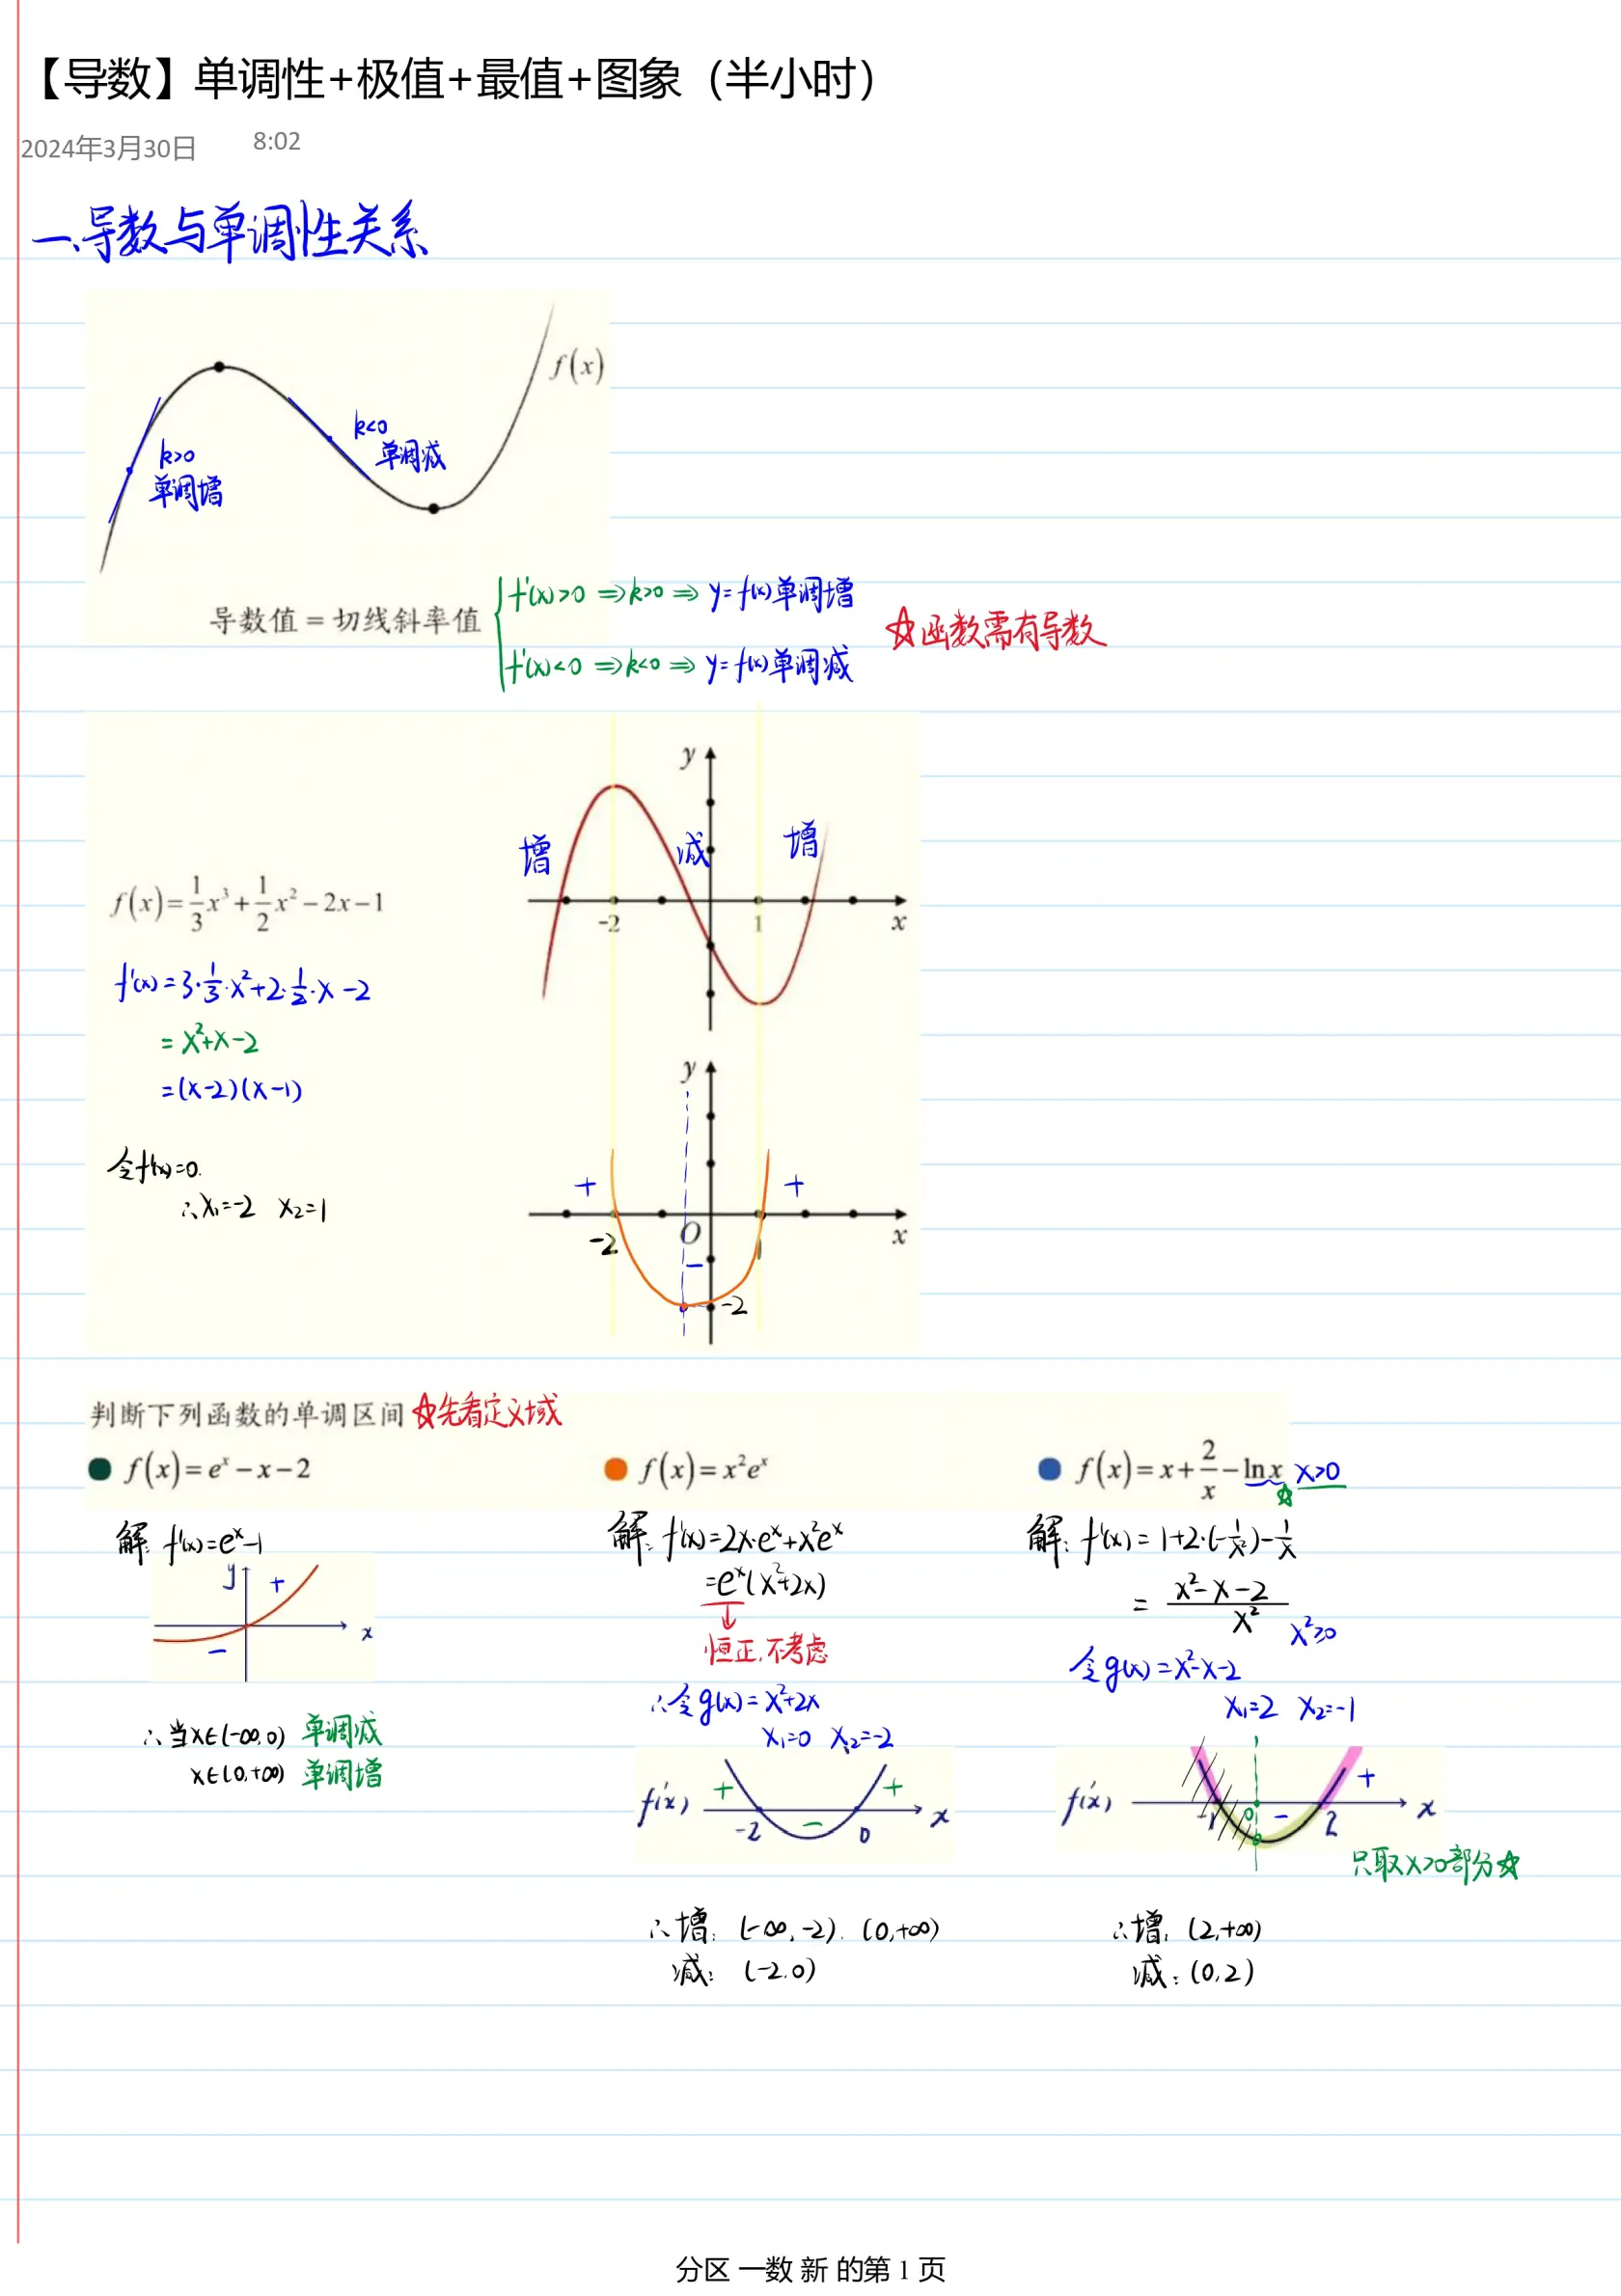 【导数】单调性+极值+最值+图象（半小时）
2024年3月30日 8:02
一、导数与单调性关系
f(x)
k<0
单调减
k>0
单调增
导数值 = 切线斜率值
f'(x)>0 ⇒k>0 ⇒ y=f(x)单调增
f'(x)<0 ⇒k<0 ⇒ y=f(x)单调减
☆函数需有导数
y
增 减 增
-2 1 x
f(x)=1/3x³+1/2x²-2x-1
f'(x)=3·1/3·x²+2·1/2·x-2
=x²+x-2
=(x-2)(x-1)
令f'(x)=0.
∴x₁=-2 x₂=1
y
+ +
-2 O 1 x
-
-2
判断下列函数的单调区间 ☆先看定义域
f(x)=eˣ-x-2
解: f'(x)=eˣ-1
y
+
x
-
∴当x∈(-∞,0) 单调减
x∈(0,+∞) 单调增
f(x)=x²eˣ
解: f'(x)=2x·eˣ+x²eˣ
=eˣ(x²+2x)
↓
恒正.不考虑
∴令g(x)=x²+2x
x₁=0 x₂=-2
f'(x) + - + x
-2 0
∴增: (-∞,-2). (0,+∞)
减: (-2.0)
f(x)=x+2/x-lnx x>0
☆
解: f'(x)=1+2·(-1/x²)-1/x
=(x²-x-2)/x²
x²≥0
令g(x)=x²-x-2
x₁=2 x₂=-1
f'(x) + x
-1 0 - 2
只取x>0部分☆
∴增: (2,+∞)
减: (0,2)
分区 一数 新 的第 1 页